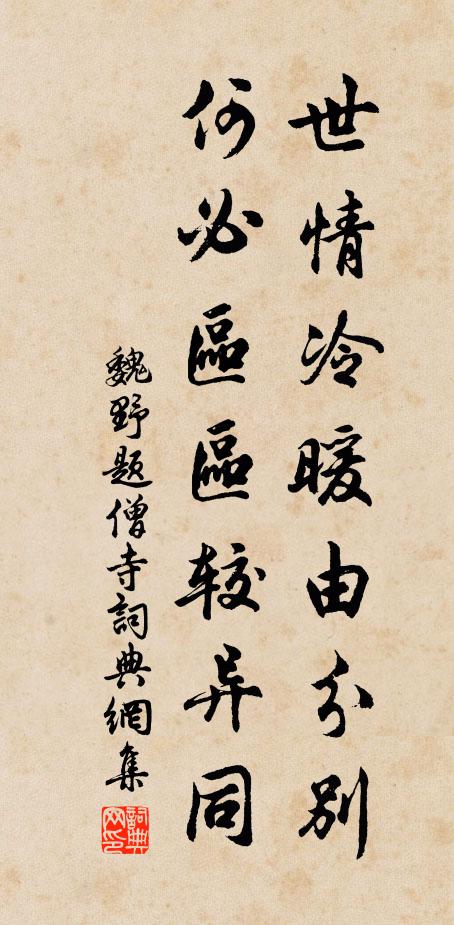 世情冷暖由分别
何必區區较异同
魏野题僧寺詞典網集
詞典网印